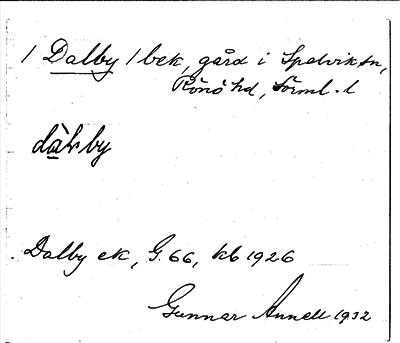 1 Dalby /bek, gård i Spelviks sn,
Rönö hd, Sörml. l
Dalby ek, G. 66, kb 1926
Gunnar Annell 1932